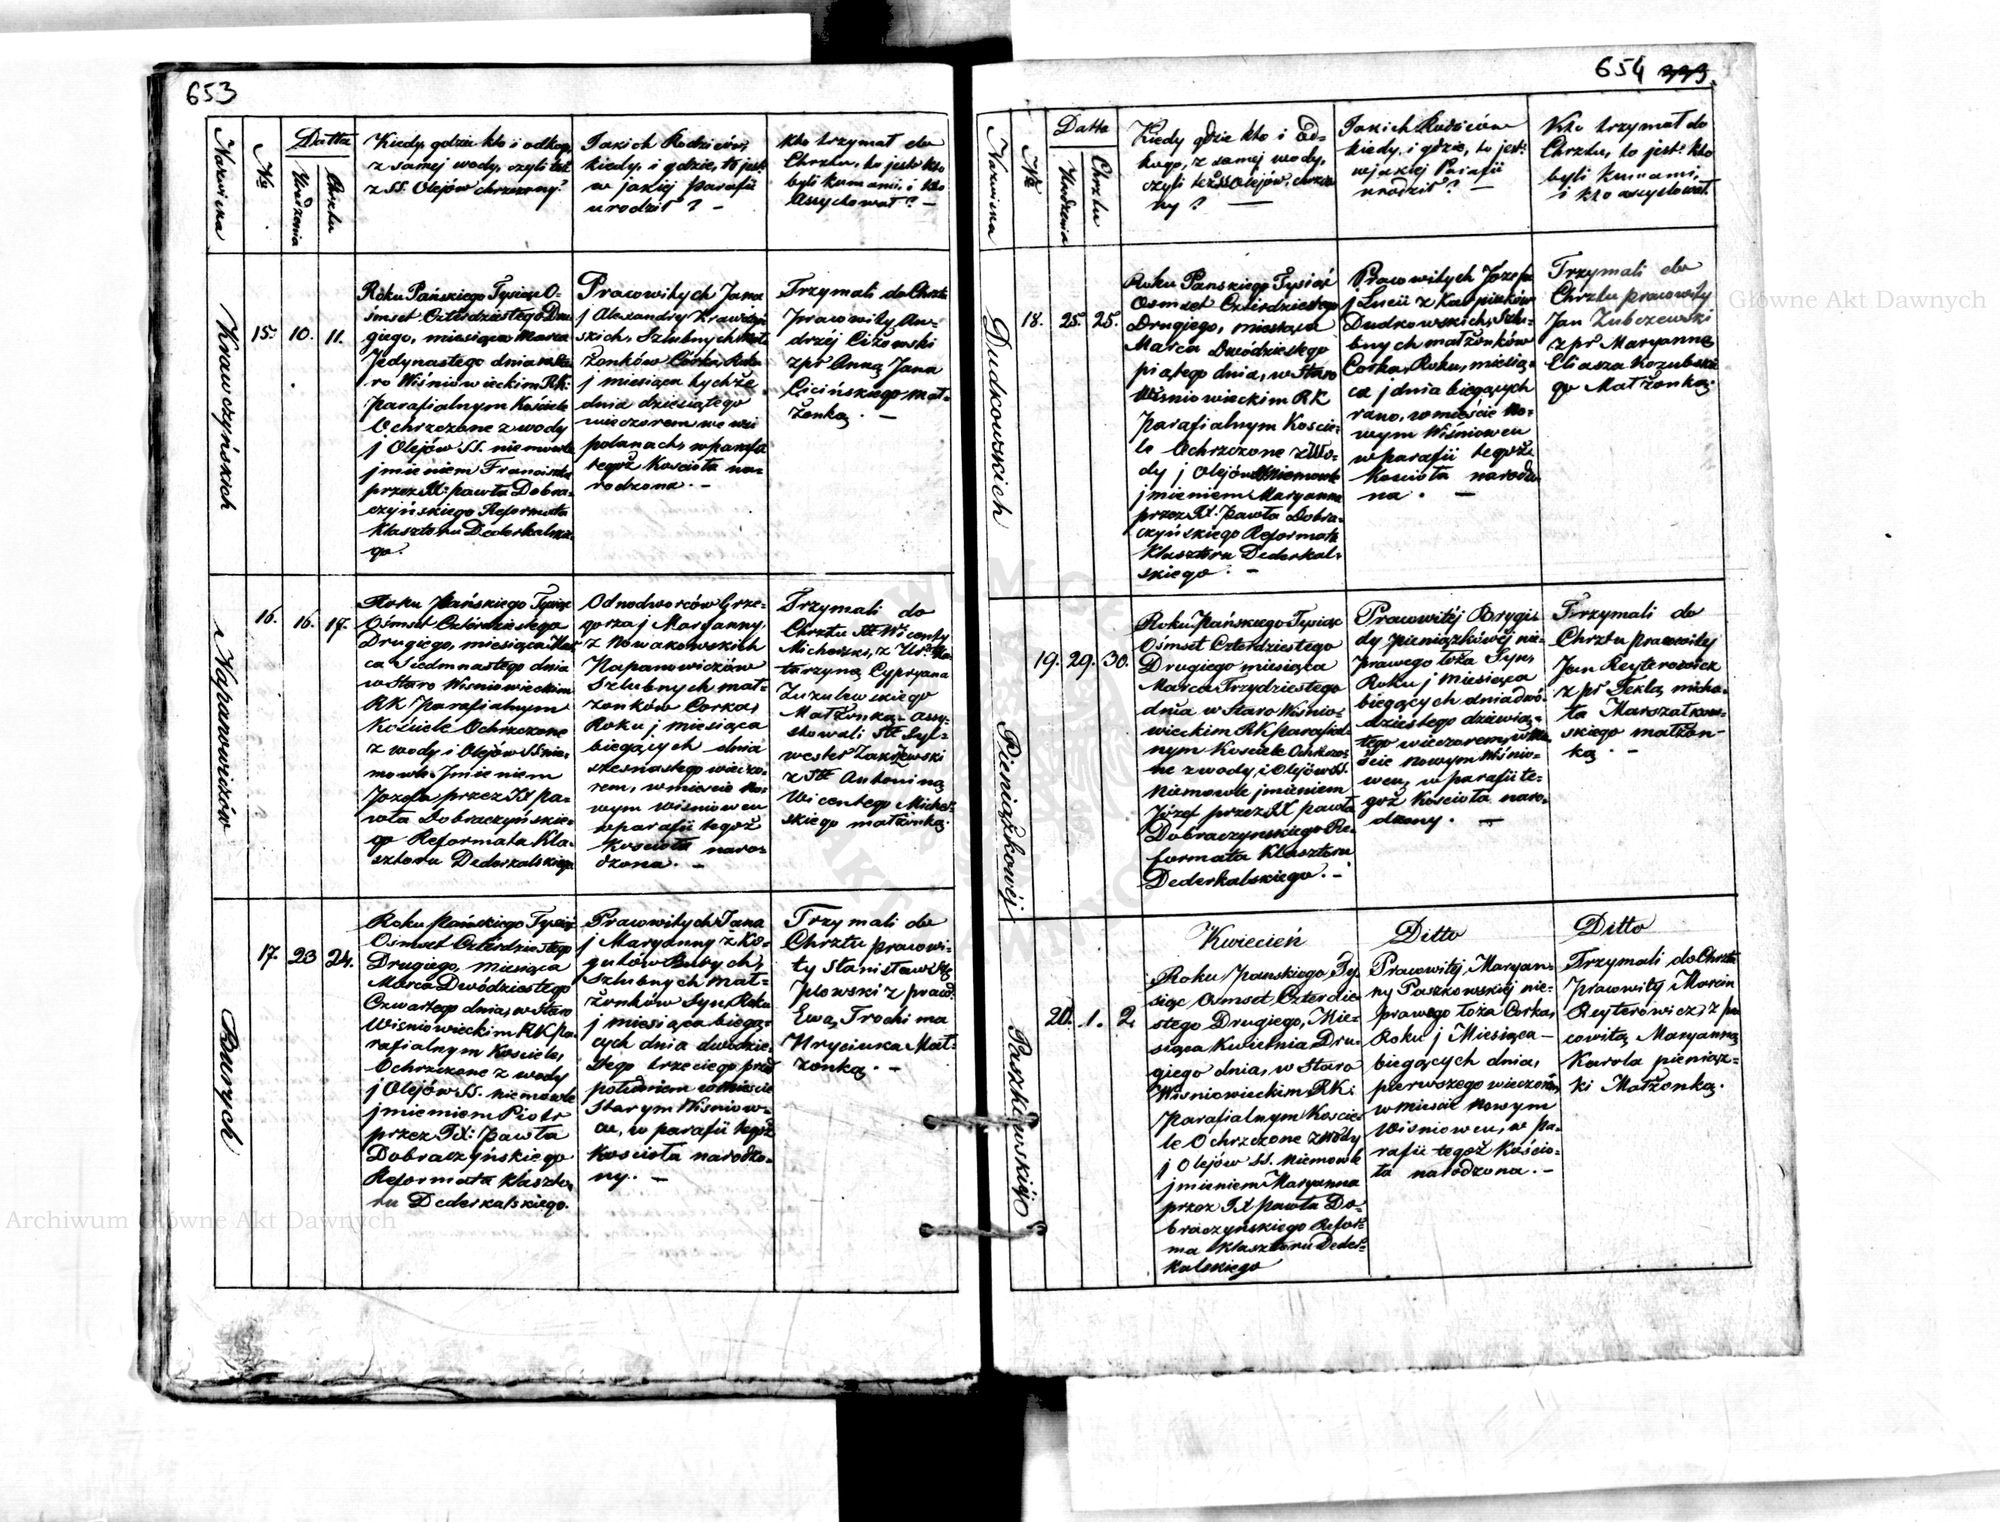 653
Nazwiska
Nr
Datta
Urodzenia
Chrztu
Kiedy, gdzie kto i od kogo,
z samej wody, czyli też
z SS. Olejów chrzczony?
Jakich Rodziców,
kiedy, i gdzie, to jest:
w jakiej Parafii
urodził? —
Kto trzymał do
Chrztu, to jest: kto
byli kumami, i kto
Assystował? —
Krawczyńskich
15.
10.
11.
Roku Pańskiego Tysiąc O-
śmset Czterdziestego Dru
giego, miesiąca Marca
Jedynastego dnia w Sta
ro Wiśniowieckim RK:
Parafialnym Kościele
Ochrzczone z wody
j Olejów SS. niemowle
jmieniem Franciszka
przez JX: Pawła Dobra-
czyńskiego Reformata
Klasztoru Dederkalskie
go.
Pracowitych Jana
j Alexandry Krawczyń
skich, Szlubnych Mał
żonków Córka, Roku
j miesiąca tychże
dnia dziesiątego
wieczorem we wsi
polanach, w parafii
tegoż Kościoła na-
rodzona. —
Trzymali do Chrztu
Pracowity An-
drzéj Ciżowski
z pr Anną Jana
Cicińskiego mał-
żonką. —
Naparowiczów
16.
16.
17.
Roku Pańskiego Tysiąc
Ośmset Czterdziestego
Drugiego, miesiąca Mar
ca Siedmnastego dnia
w Staro Wiśniowieckim
RK Parafialnym
Kościele Ochrzczone
z wody i Olejów SS nie-
mowle Jmieniem
Jozefa przez JX Pa-
wła Dobraczyńskie-
go Reformata Kla-
sztoru Dederkalskiego
Odnodworców Grze-
gorza j Maryanny
z Nowakowskich
Naparowiczów
Szlubnych mał-
żonków Corka,
Roku j miesiąca
biegących dnia
szesnastego wieczo-
rem, w mieście No-
wym Wiśniowcu
w parafii tegoż
Kościoła naro-
dzona. —
Trzymali do
Chrztu Wicenty
Michoński, z Ka-
tarzyną Cypryana
Żuzulewskiego
Małżonką. Assy-
stowali Syl-
wester Zakrzewski
z Antoniną
Wicentego Michoń-
skiego małżonką.
Burych
17.
23
24.
Roku Pańskiego Tysiąc
Ośmset Czterdziestego
Drugiego, miesiąca
Marca Dwódziestego
Czwartego dnia, w Staro
Wiśniowieckim RK Pa-
rafialnym Kościele,
Ochrzczone z wody
j Olejów SS. niemowle
jmieniem Piotr
przez JX: Pawła
Dobraczyńskiego
Reformata Klaszto
ru Dederkalskiego.
Pracowitych Jana
j Maryanny z Ko-
gutów Burych,
Szlubnych mał-
żonków Syn, Roku
j miesiąca biegą-
cych dnia dwódzie
stego trzeciego przed
południem w mieście
Starym Wiśniow-
cu, w parafii tegoż
Kościoła narodzo-
ny. —
Trzymali do
Chrztu pracowi-
ty Stanisław
Plowski z praw.
Ewą, Trochima
Hryciuka Mał-
żonką. —
654 333.
Nazwiska
Nr
Datta
Urodzenia
Chrztu
Kiedy gdzie kto i od-
kogo, z samej wody,
czyli też SS Olejów, chrzczo
ny? —
Jakich Rodziców
kiedy, i gdzie, to jest:
w jakiej Parafii
urodził? —
Kto trzymał do
Chrztu, to jest: kto
byli kumami,
i kto assystował.
Dudkowskich
18.
25.
25.
Roku Pańskiego Tysiąć
Ośmset Czterdziestego
Drugiego, miesiąca
Marca Dwódziestego
piątego dnia, w Staro
Wiśniowieckim RK
Parafialnym Koście-
le Ochrzczone z Wo-
dy j Olejów SS Niemowle
jmieniem Maryanna
przez JX. Pawła Dobra-
czyńskiego Reformata
Klasztoru Dederkal-
skiego. —
Pracowitych Józefa
j Lucii z Karpiuków
Dudkowskich, Szlu-
bnych małżonków
Corka, Roku, miesią-
ca j dnia biegących
rano, w mieście No-
wym Wiśniowcu
w parafii tegoż
Kościoła narodzo
na. —
Trzymali do
Chrztu pracowity
Jan Zubczewski
z pr Maryanną
Eliasza Kozubski
go Małżonką.
Pieniążkowéj
19.
29.
30.
Roku Pańskiego Tysiąc
Ośmset Czterdziestego
Drugiego miesiąca
Marca Trzydziestego
dnia w Staro Wiśnio-
wieckim RK parafial-
nym Kościele Ochrzczo-
ne z wody, i Olejów SS.
Niemowle jmieniem
Józef przez JX Pawła
Dobraczyńskiego Re-
formata Klasztoru
Dederkalskiego. —
Pracowitéj Brygi-
dy Pieniążkówéj nie-
prawego łoża Syn,
Roku j miesiąca
biegących dnia dwó-
dziestego dziewią-
tego wieczorem, w Mie
ście Nowym Wiśnio-
wcu, w parafii te-
goż Kościoła naro-
dzony. —
Trzymali do
Chrztu pracowity
Jan Reyterowicz
z pr Teklą Micha-
ła Marszałkow-
skiego małżon-
ką. —
Paszkowskiéjo
20.
1.
2.
Kwiecień
Roku Pańskiego Ty-
siąc Ośmset Czterdzie
stego Drugiego, Mie-
siąca Kwietnia Dru-
giego dnia, w Staro
Wiśniowieckim RK:
Parafialnym Koście-
le Ochrzczone z wody
j Olejów SS. Niemowle
jmieniem Maryanna
przez JX Pawła Do-
braczyńskiego Refor-
ma Klasztoru Deder-
kalskiego
Ditto
Pracowitéj Maryan-
ny Paszkowskiéj nie-
prawego łoża Corka,
Roku j Miesiąca —
biegących dnia,
pierwszego wieczorem,
w Mieście Nowym
Wiśniowcu, w pa-
rafii tegoż Kościo-
ła narodzona. —
Ditto
Trzymali do Chrztu
Pracowity Marcin
Reyterowicz, z pra
cowitą Maryanną
Karola pieniąż-
ki Małżonką.
Archiwum Główne Akt Dawnych
Główne Akt Dawnych